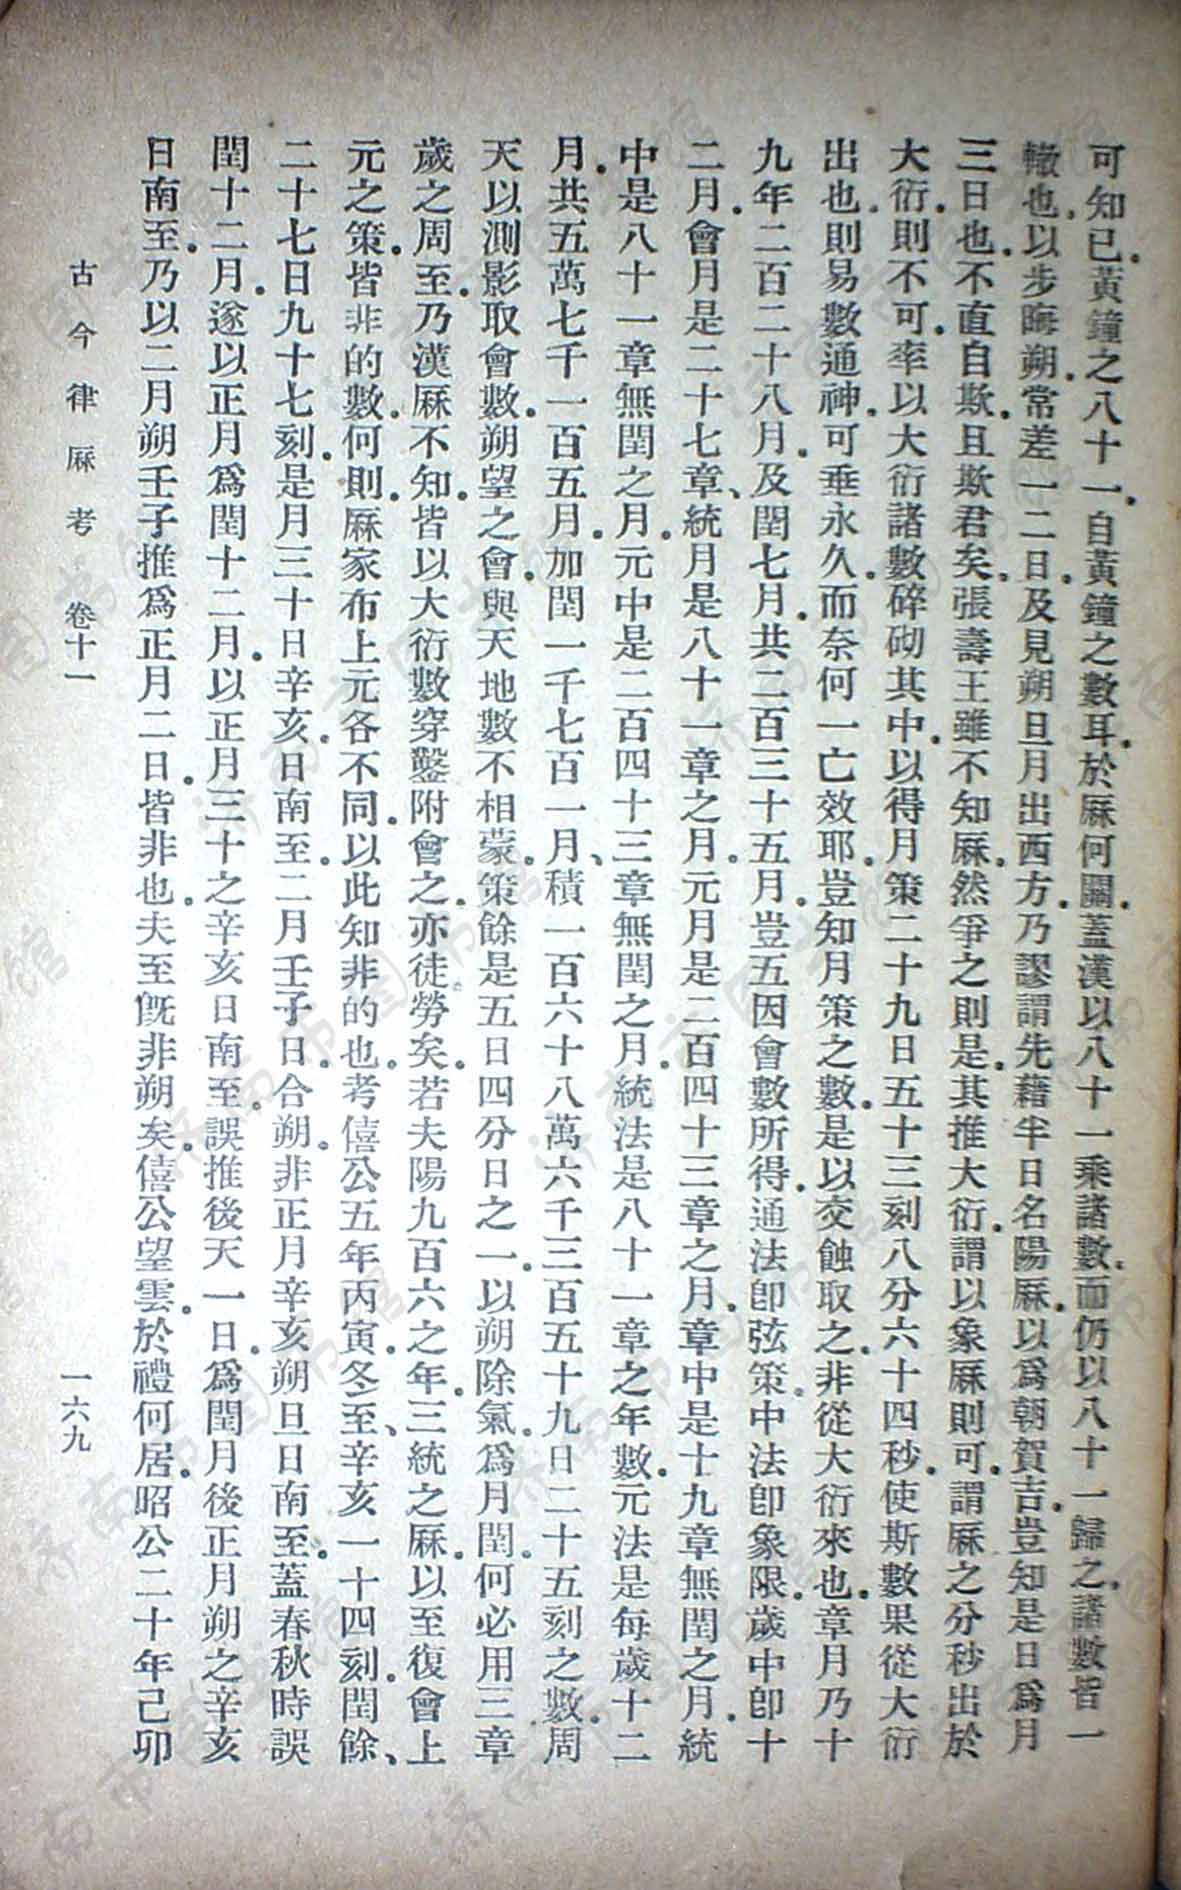 可知已。黃鐘之八十一。自黃鐘之數耳。於厤何關。蓋漢以八十一乘諸數。而仍以八十一歸之。諸數皆一
轍也。以步晦朔。常差一二日。及見朔旦月出西方。乃謬謂先藉半日名陽厤。以爲朝賀吉。豈知是日爲月
三日也。不直自欺。且欺君矣。張壽王雖不知厤。然爭之則是。其推大衍。謂以象厤則可。謂厤之分秒出於
大衍。則不可。率以大衍諸數碎砌其中。以得月策二十九日五十三刻八分六十四秒。使斯數果從大衍
出也。則易數通神。可垂永久。而奈何一亡效耶。豈知月策之數。是以交蝕取之。非從大衍來也。章月乃十
九年二百二十八月。及閏七月。共二百三十五月。豈五因會數所得。通法卽弦策。中法卽象限。歲中卽十
二月。會月是二十七章、統月是八十一章之月。元月是二百四十三章之月。章中是十九章無閏之月。統
中是八十一章無閏之月。元中是二百四十三章無閏之月。統法是八十一章之年數。元法是每歲十二
月。共五萬七千一百五月。加閏一千七百一月、積一百六十八萬六千三百五十九日二十五刻之數。周
天以測影取會數。朔望之會。與天地數不相蒙。策餘是五日四分日之一。以朔除氣。爲月閏。何必用三章
歲之周至。乃漢厤不知。皆以大衍數穿鑿附會之。亦徒勞矣。若夫陽九百六之年。三統之厤。以至復會上
元之策。皆非的數。何則。厤家布上元各不同。以此知非的也。考僖公五年丙寅。冬至、辛亥一十四刻。閏餘、
二十七日九十七刻。是月三十日辛亥。日南至。二月壬子日。合朔。非正月辛亥朔旦日南至。蓋春秋時誤
閏十二月。遂以正月爲閏十二月。以正月三十之辛亥日南至。誤推後天一日。爲閏月後正月朔之辛亥
日南至。乃以二月朔壬子推爲正月二日。皆非也。夫至旣非朔矣。僖公望雲。於禮何居。昭公二十年己卯
古今律厤考 卷十一 一六九